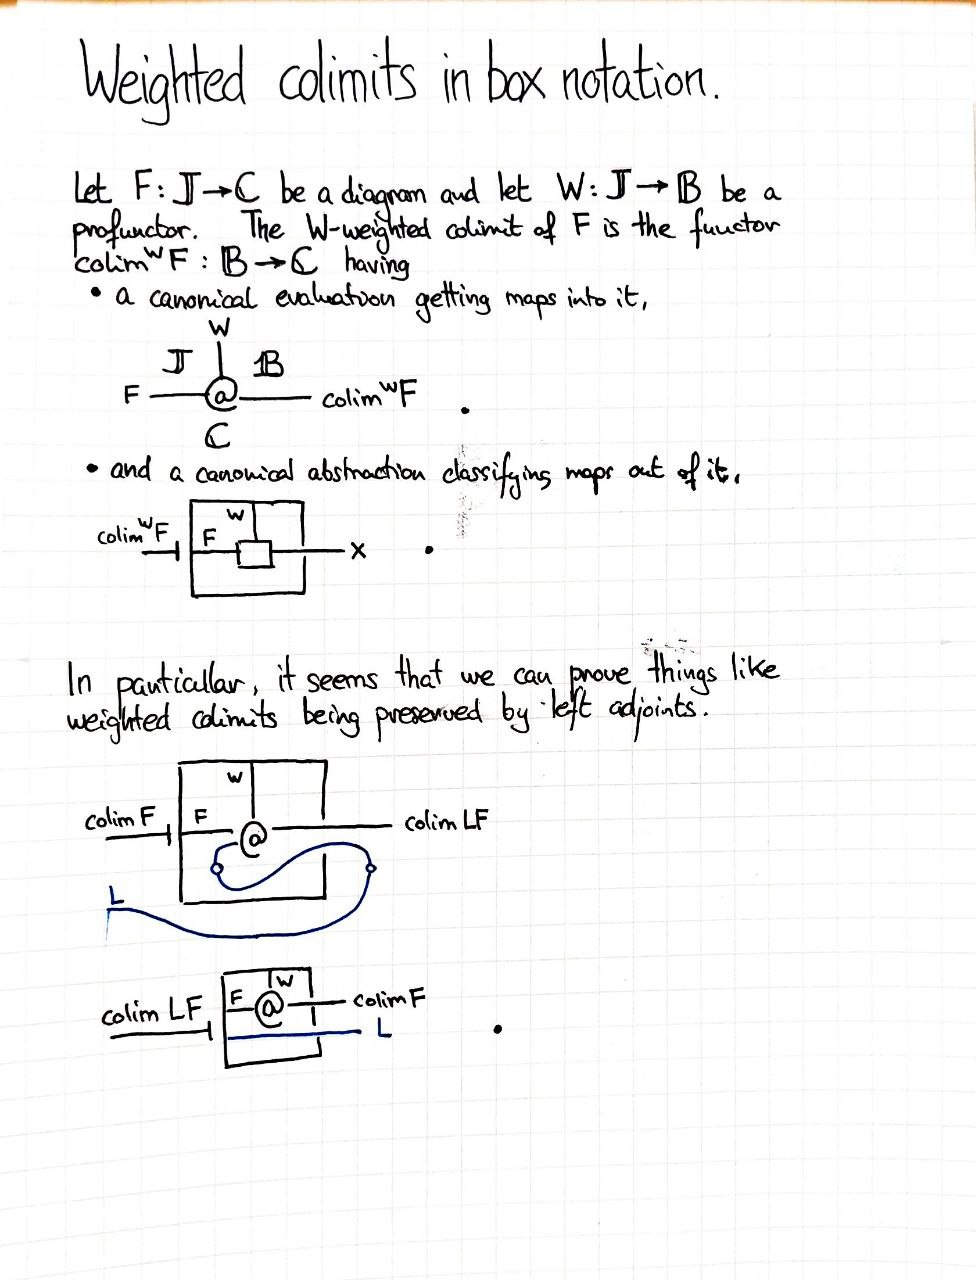 Weighted colimits in box notation.
Let F: 𝕁→ℂ be a diagram and let W: 𝕁→𝔹 be a
profunctor. The W-weighted colimit of F is the functor
colimᵂF : 𝔹→ℂ having
• a canonical evaluation getting maps into it,
W
𝕁 𝔹
F @ colimᵂF .
ℂ
• and a canonical abstraction classifying maps out of it,
W
colimᵂF F X .
In particular, it seems that we can prove things like
weighted colimits being preserved by left adjoints.
W
colim F F @ colim LF
L
W
colim LF F @ colim F
L .